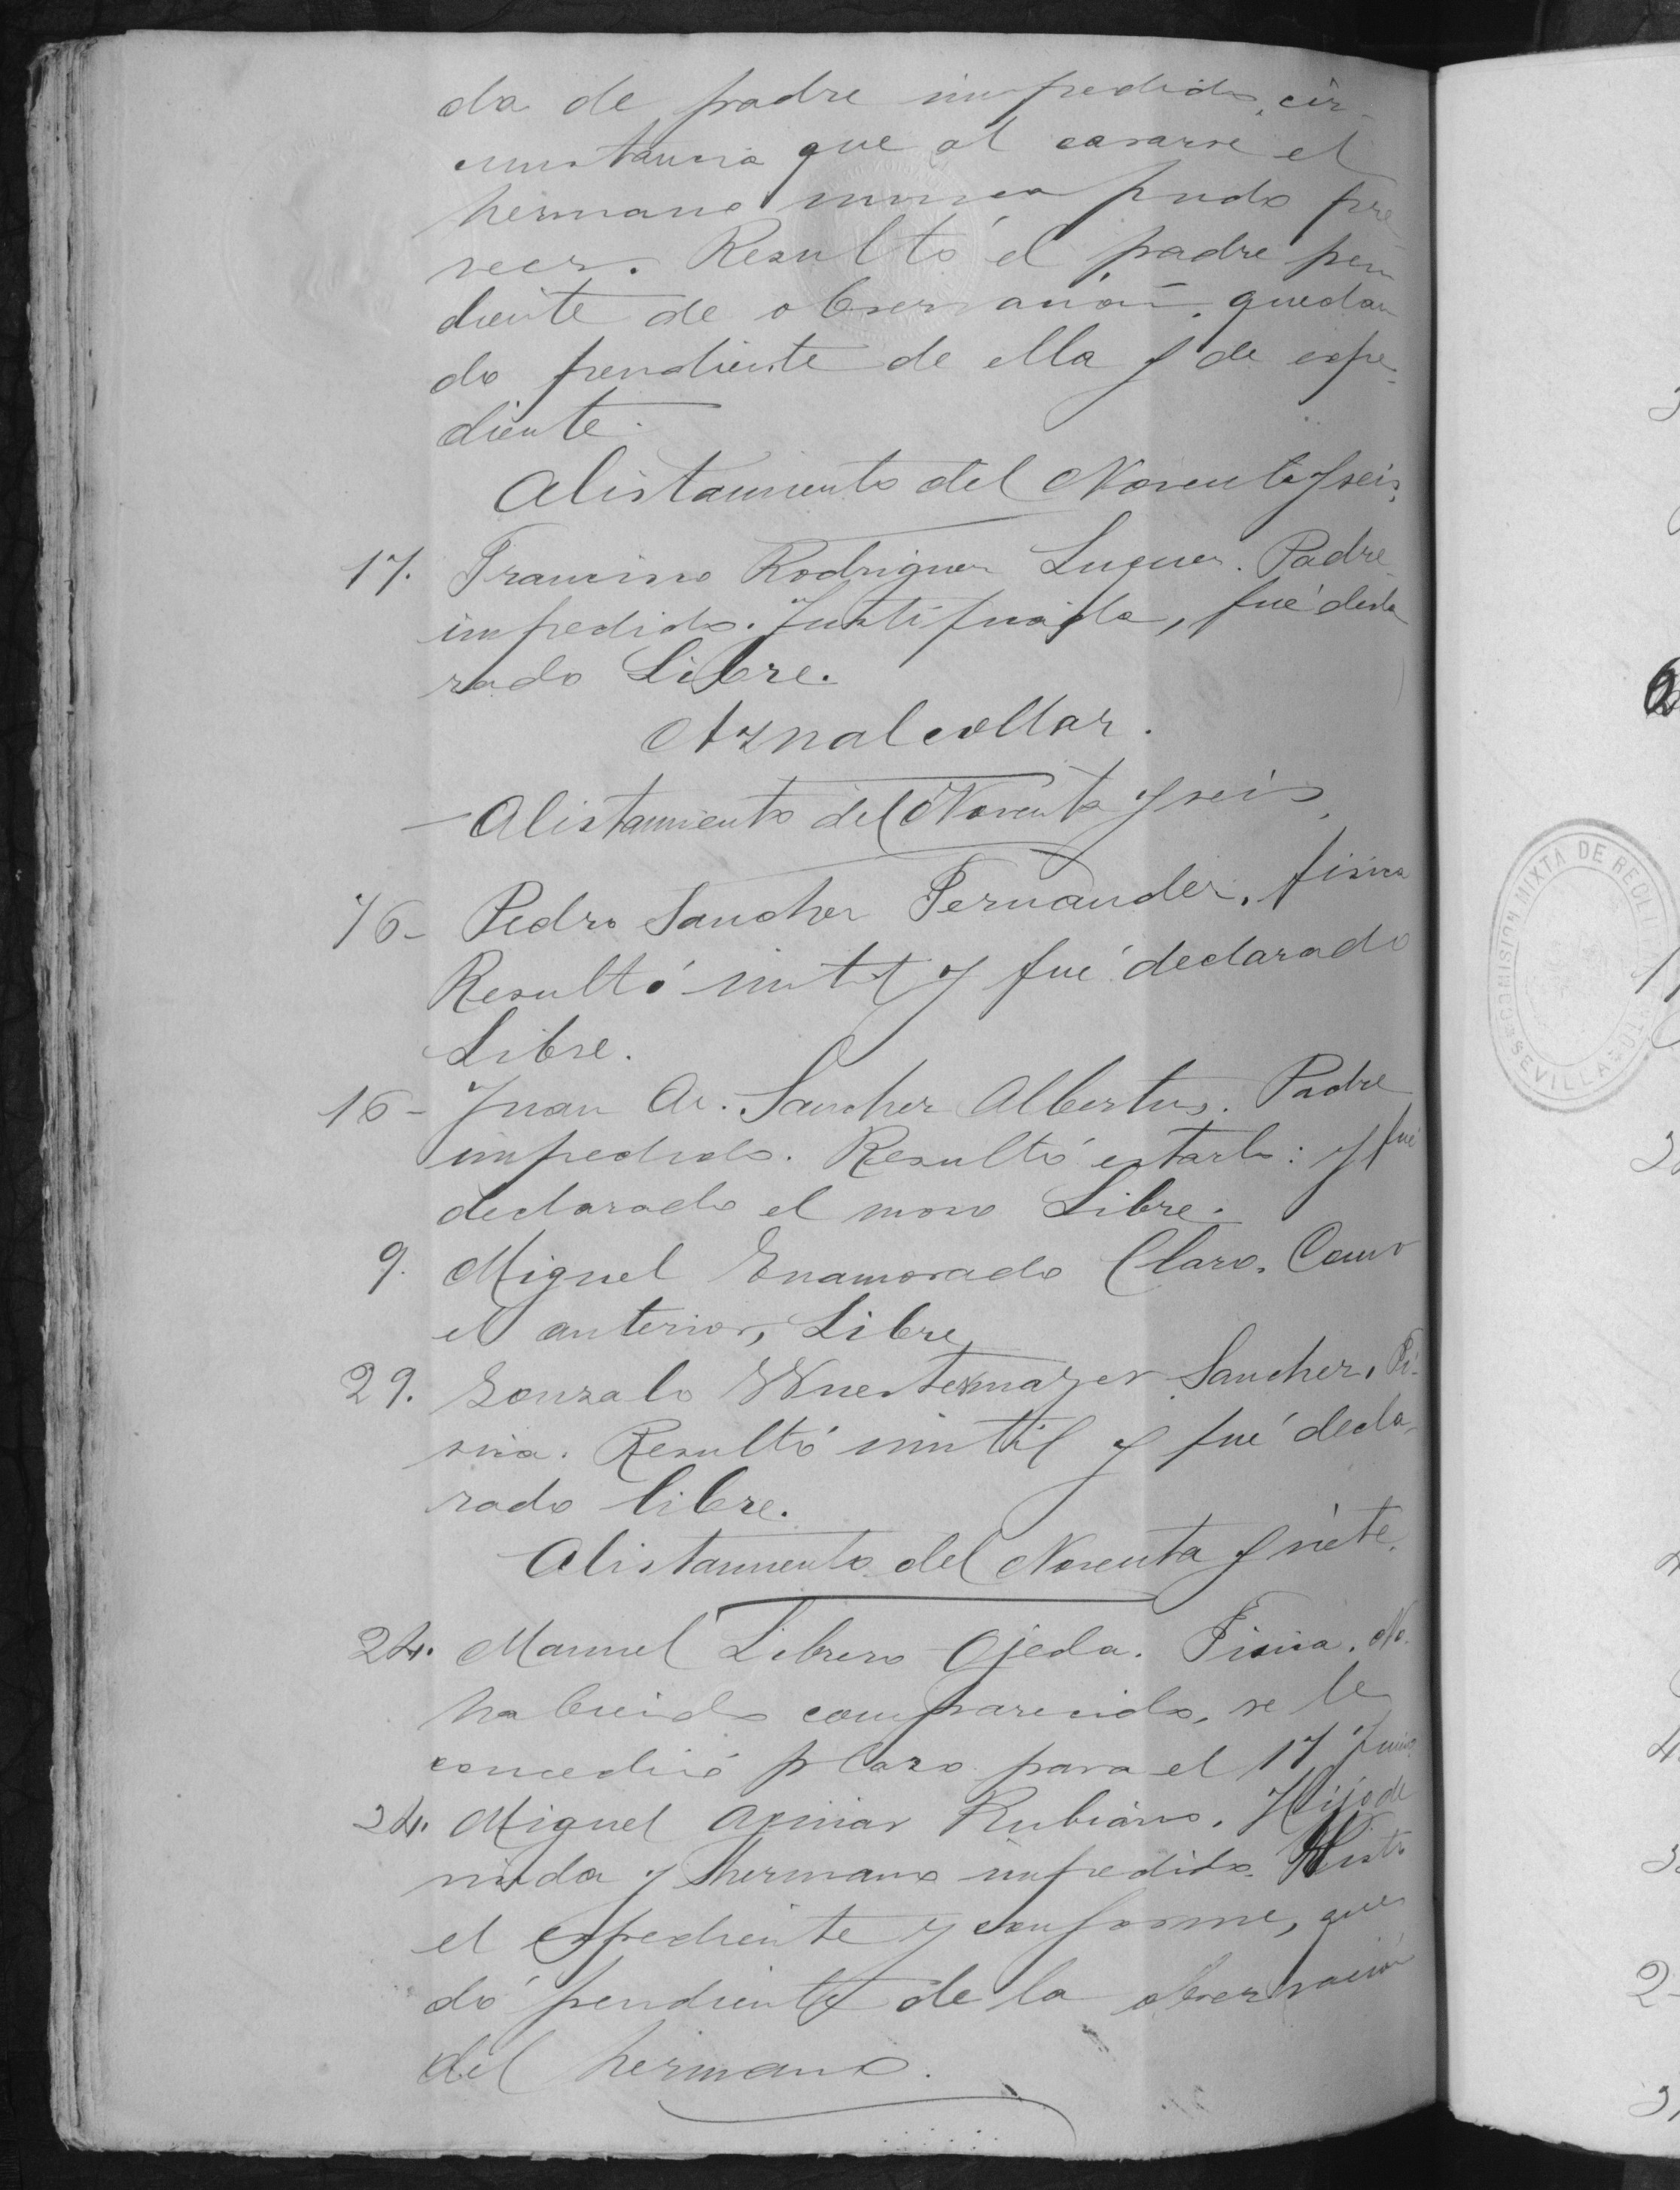 da de padre impedido, cir-
cunstancia que al casarse el
hermano nunca pudo pre-
veer. Resultó el padre pen
diente de observación, quedan
do pendiente de ella y de espe-
diente.
Alistamiento del Noventa y seis.
17. Francisco Rodriguez Luques. Padre
impedido. Justificada, fué decla
rado Libre.
Aznalcollar.
Alistamiento del Noventa y seis.
76- Pedro Sanchez Fernandez, fisica
Resultó inutil y fué declarado
Libre.
16- Juan Sanchez Albertus. Padre
impedido. Resultó estarlo: y fué
declarado el mozo Libre.
9. Miguel Enamorado Claro. Como
el anterior, Libre,
29. Gonzalo Wuestemayer Sanchez. Fi-
sica. Resultó inutil y fué decla-
rado libre.
Alistamiento del Noventa y siete.
24. Manuel Librero Ojeda. Fisica. No
habiendo comparecido, se le
concedió plazo para el 17 Junio
34. Miguel Rubiano. Hijo de
viuda y hermano impedido. Visto
el espediente y conforme, que
dó pendiente de la observación
del hermano.
COMISION MIXTA DE RECLUTAMIENTO
SEVILLA